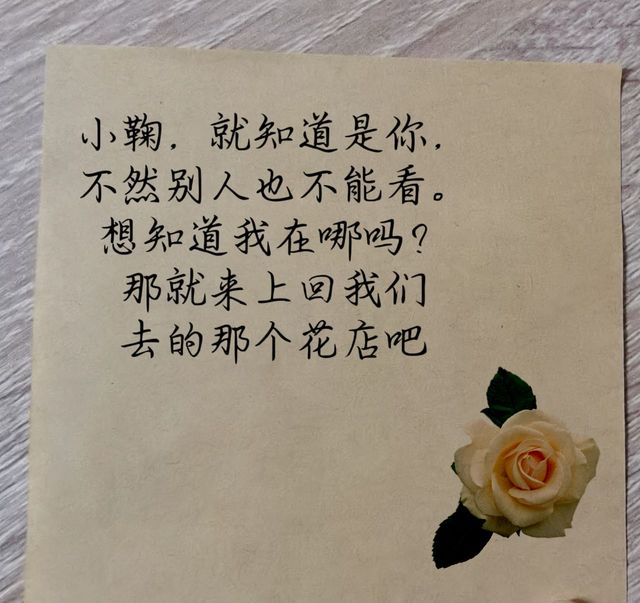 小鞠，就知道是你，
不然别人也不能看。
想知道我在哪吗？
那就来上回我们
去的那个花店吧